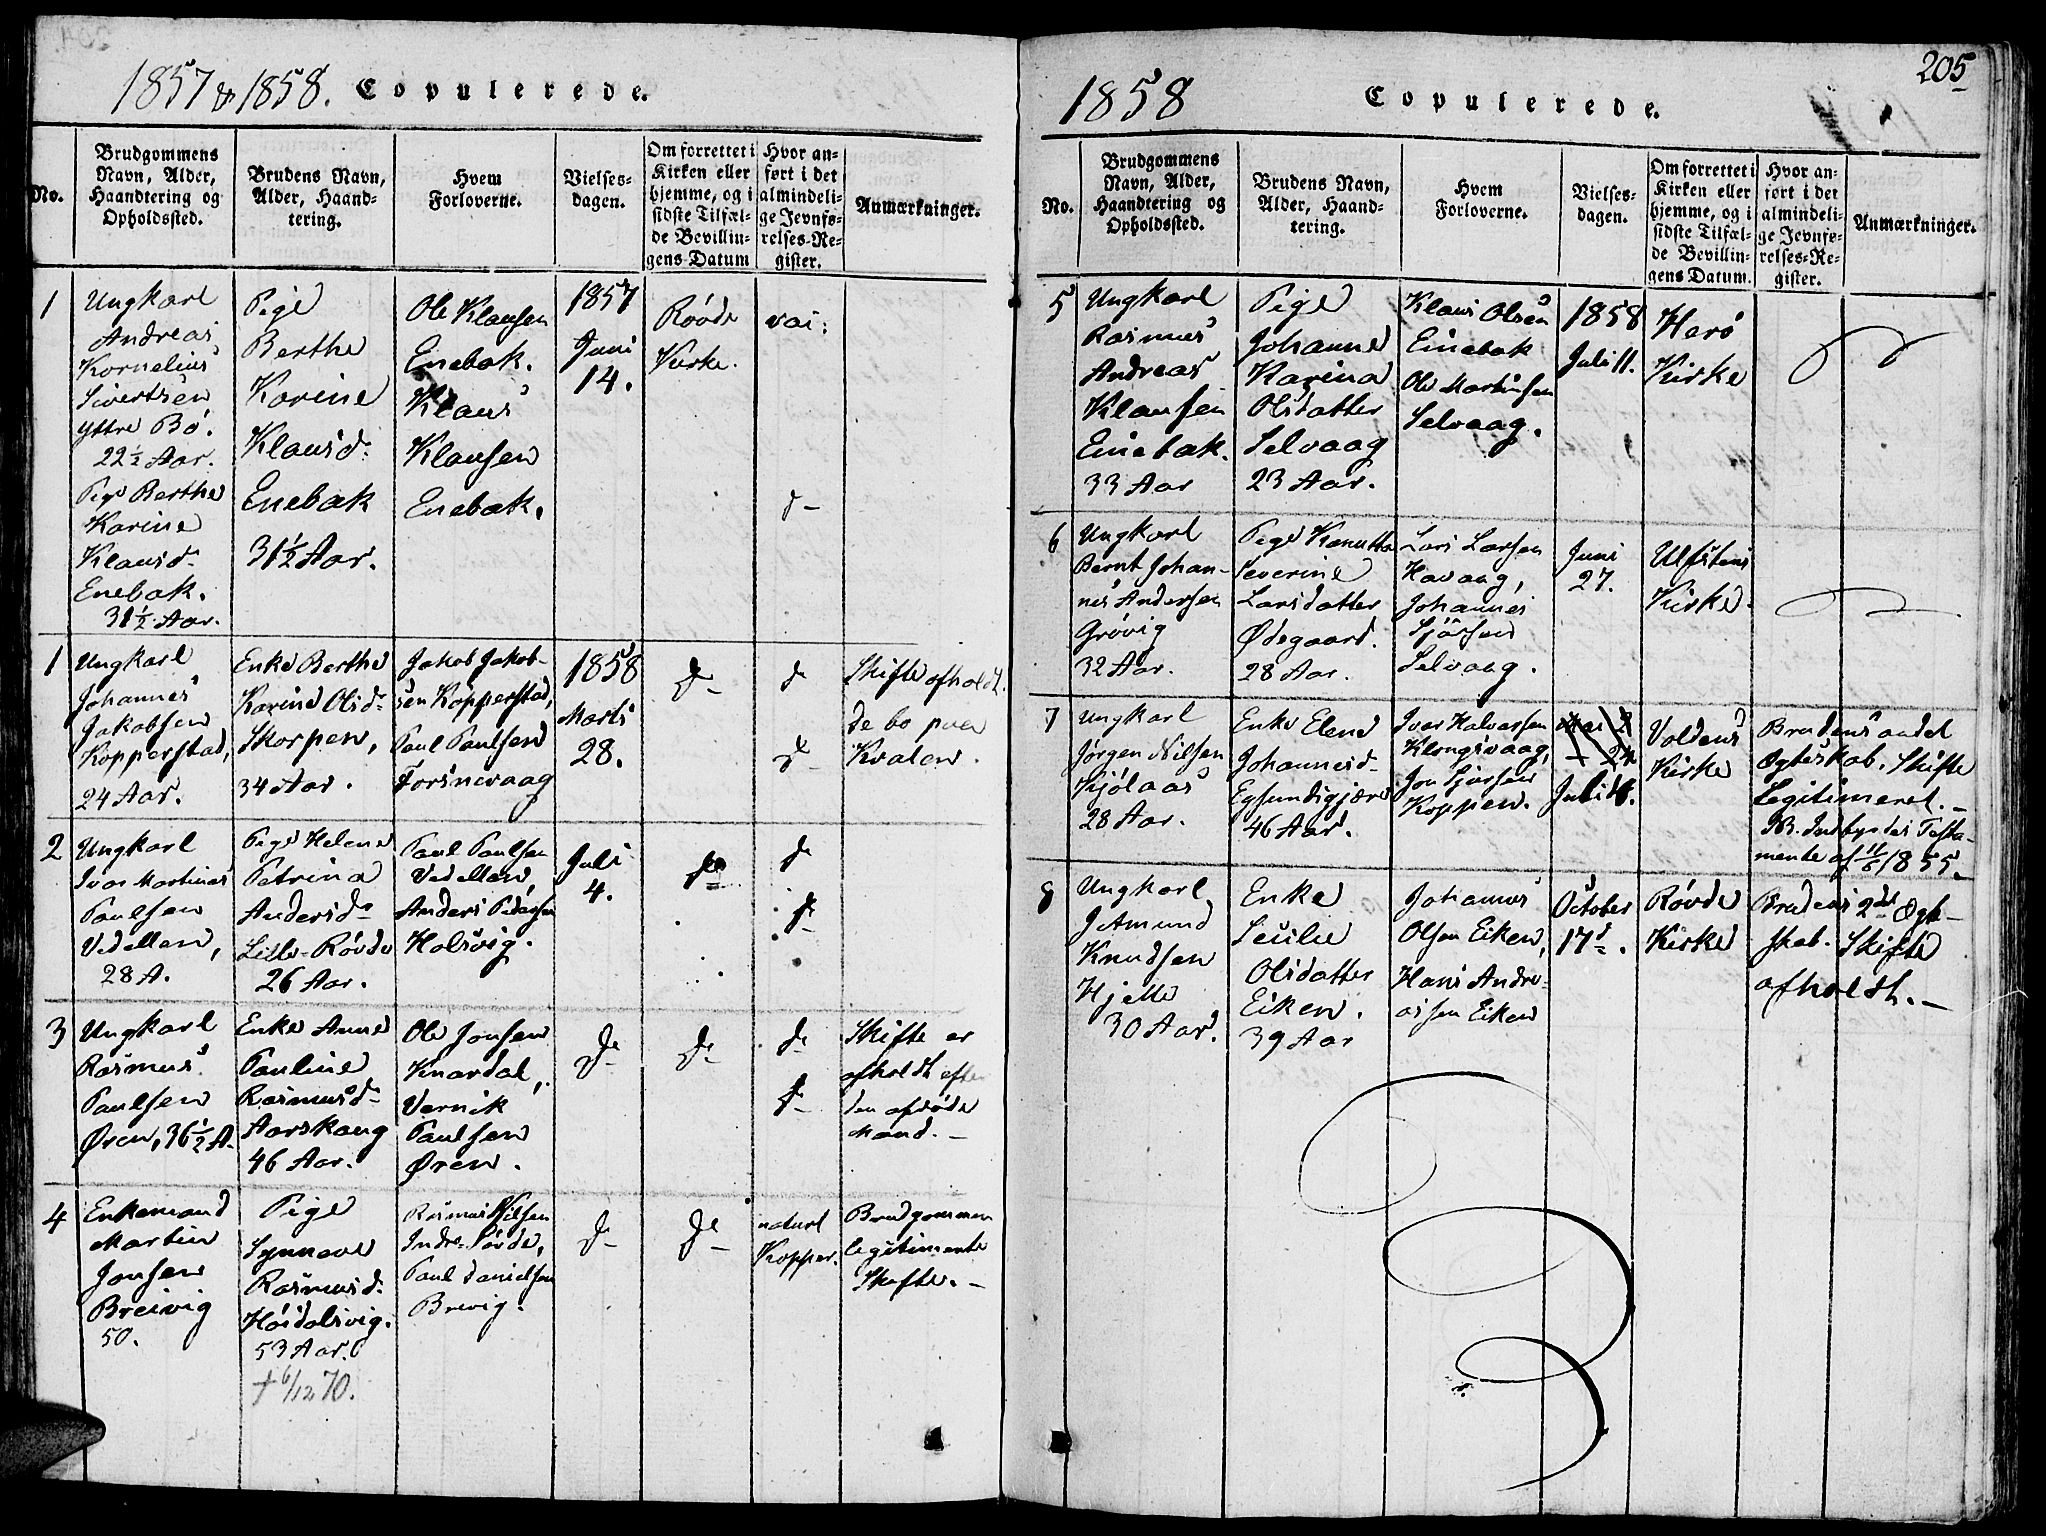 1857 & 1858. Copulerede.
No.
Brudgommens
Navn, Alder,
Haandtering og
Opholdssted.
Brudens Navn,
Alder, Haand-
tering.
Hvem
Forloverne.
Vielses-
dagen.
Om forrettet i
Kirken eller
hjemme, og i
sidste Tilfæl-
de Bevillin-
gens Datum
Hvor an-
ført i det
almindeli-
ge Jevnfø-
relses-Re-
gister.
Anmærkninger.
1
Ungkarl
Andreas
Kornelius
Sivertsen
Yttre Bö.
22½ Aar.
Pige Berthe
Karine
Klausd.
Enebak.
31½ Aar.
Pige
Berthe
Karine
Klausd.
Enebak
31½ Aar.
Ole Klausen
Enebak.
Klaus
Klausen
Enebak.
1857
Juni
14.
Rövde
Kirke.
vac:
d-
1
Ungkarl
Johannes
Jakobsen
Kopperstad,
24 Aar.
Enke Berthe
Karine Olsd-
Skorpen,
34 Aar.
Jakob Jakob-
sen Kopperstad,
Paul Paulsen
Forsnevaag
1858
Marts
28.
d-
d
d-
Skifte afholdt.
de bo paa
Kvalen.
2
Ungkarl
Ivar Martinus
Paulsen
Vedellen,
28 A.
Pige Helene
Petrina
Andersd-
Lille-Rövde
26 Aar.
Paul Paulsen
Vedellen,
Anders Pedersen
Holsvig.
Juli
4.
d-
d-
d-
3
Ungkarl
Rasmus
Paulsen
Øren, 36½ A.
Enke Anne
Pauline
Rasmusd-
Aarskaug
46 Aar.
Ole Jonsen
Knardal,
Vernik
Paulsen
Øren.
d-
d-
d-
d-
Skifte er
afholdt efter
den afdöde
Mand.-
4
Enkemand
Martin
Jonsen
Breivig
50.
Pige
Synneve
Rasmusd.
Höidalsvig.
53 Aar.
† 6/12 70.
Rasmus Nilsen
Indre-Sörde,
Paul Danielsen
Brevig.
d-
d-
naturl
Kopper.
Brudgommen
legitimerte
Skifte.-
205
1858 Copulerede.
No.
Brudgommens
Navn, Alder,
Haandtering og
Opholdssted.
Brudens Navn,
Alder, Haand-
tering.
Hvem
Forloverne.
Vielses-
dagen.
Om forrettet i
Kirken eller
hjemme, og i
sidste Tilfæl-
de Bevillin-
gens Datum.
Hvor an-
ført i det
almindeli-
ge Jevnfø-
relses-Re-
gister.
Anmærkninger.
5
Ungkarl
Rasmus
Andreas
Klausen
Einebak.
33 Aar
Pige
Johanne
Karina
Olsdatter
Selvaag
23 Aar.
Klaus Olsen
Einebak
Ole Martinsen
Selvaag.
1858
Juli 11.
Herö
Kirke
6
Ungkarl
Bernt Johan-
nes Andersen
Grövig
32 Aar.
Pige Kanutte
Severine
Larsdatter
Ødegaard.
28 Aar.
Lars Larsen
Havaag,
Johannes
Sjörsen
Selvaag.
Juni
27.
Ulfstens
Kirke.
7
Ungkarl
Jörgen Nilsen
Kjölaas
28 Aar.
Enke Elene
Johannesd-
Egsundsgjære
46 Aar.
Iver Halvorsen
Klongsvaag,
Jon Sjursen
Koppen.
24
Voldens
Kirke
Brudens andet
Ægteskab. Skifte
Legitimeret.-
NB. Indbyrdes Testa-
mente af 11/6 1855.-
8
Ungkarl
Knudsen
Hjelle
30 Aar.
Enke
Secilie
Olsdatter
Eiken.
39 Aar
Johannes
Olsen Eiken,
Hans Andre-
assen Eiken
October
17d.
Rövde
Kirke
Brudens 2det Ægte-
skab. Skifte
afholdt.-